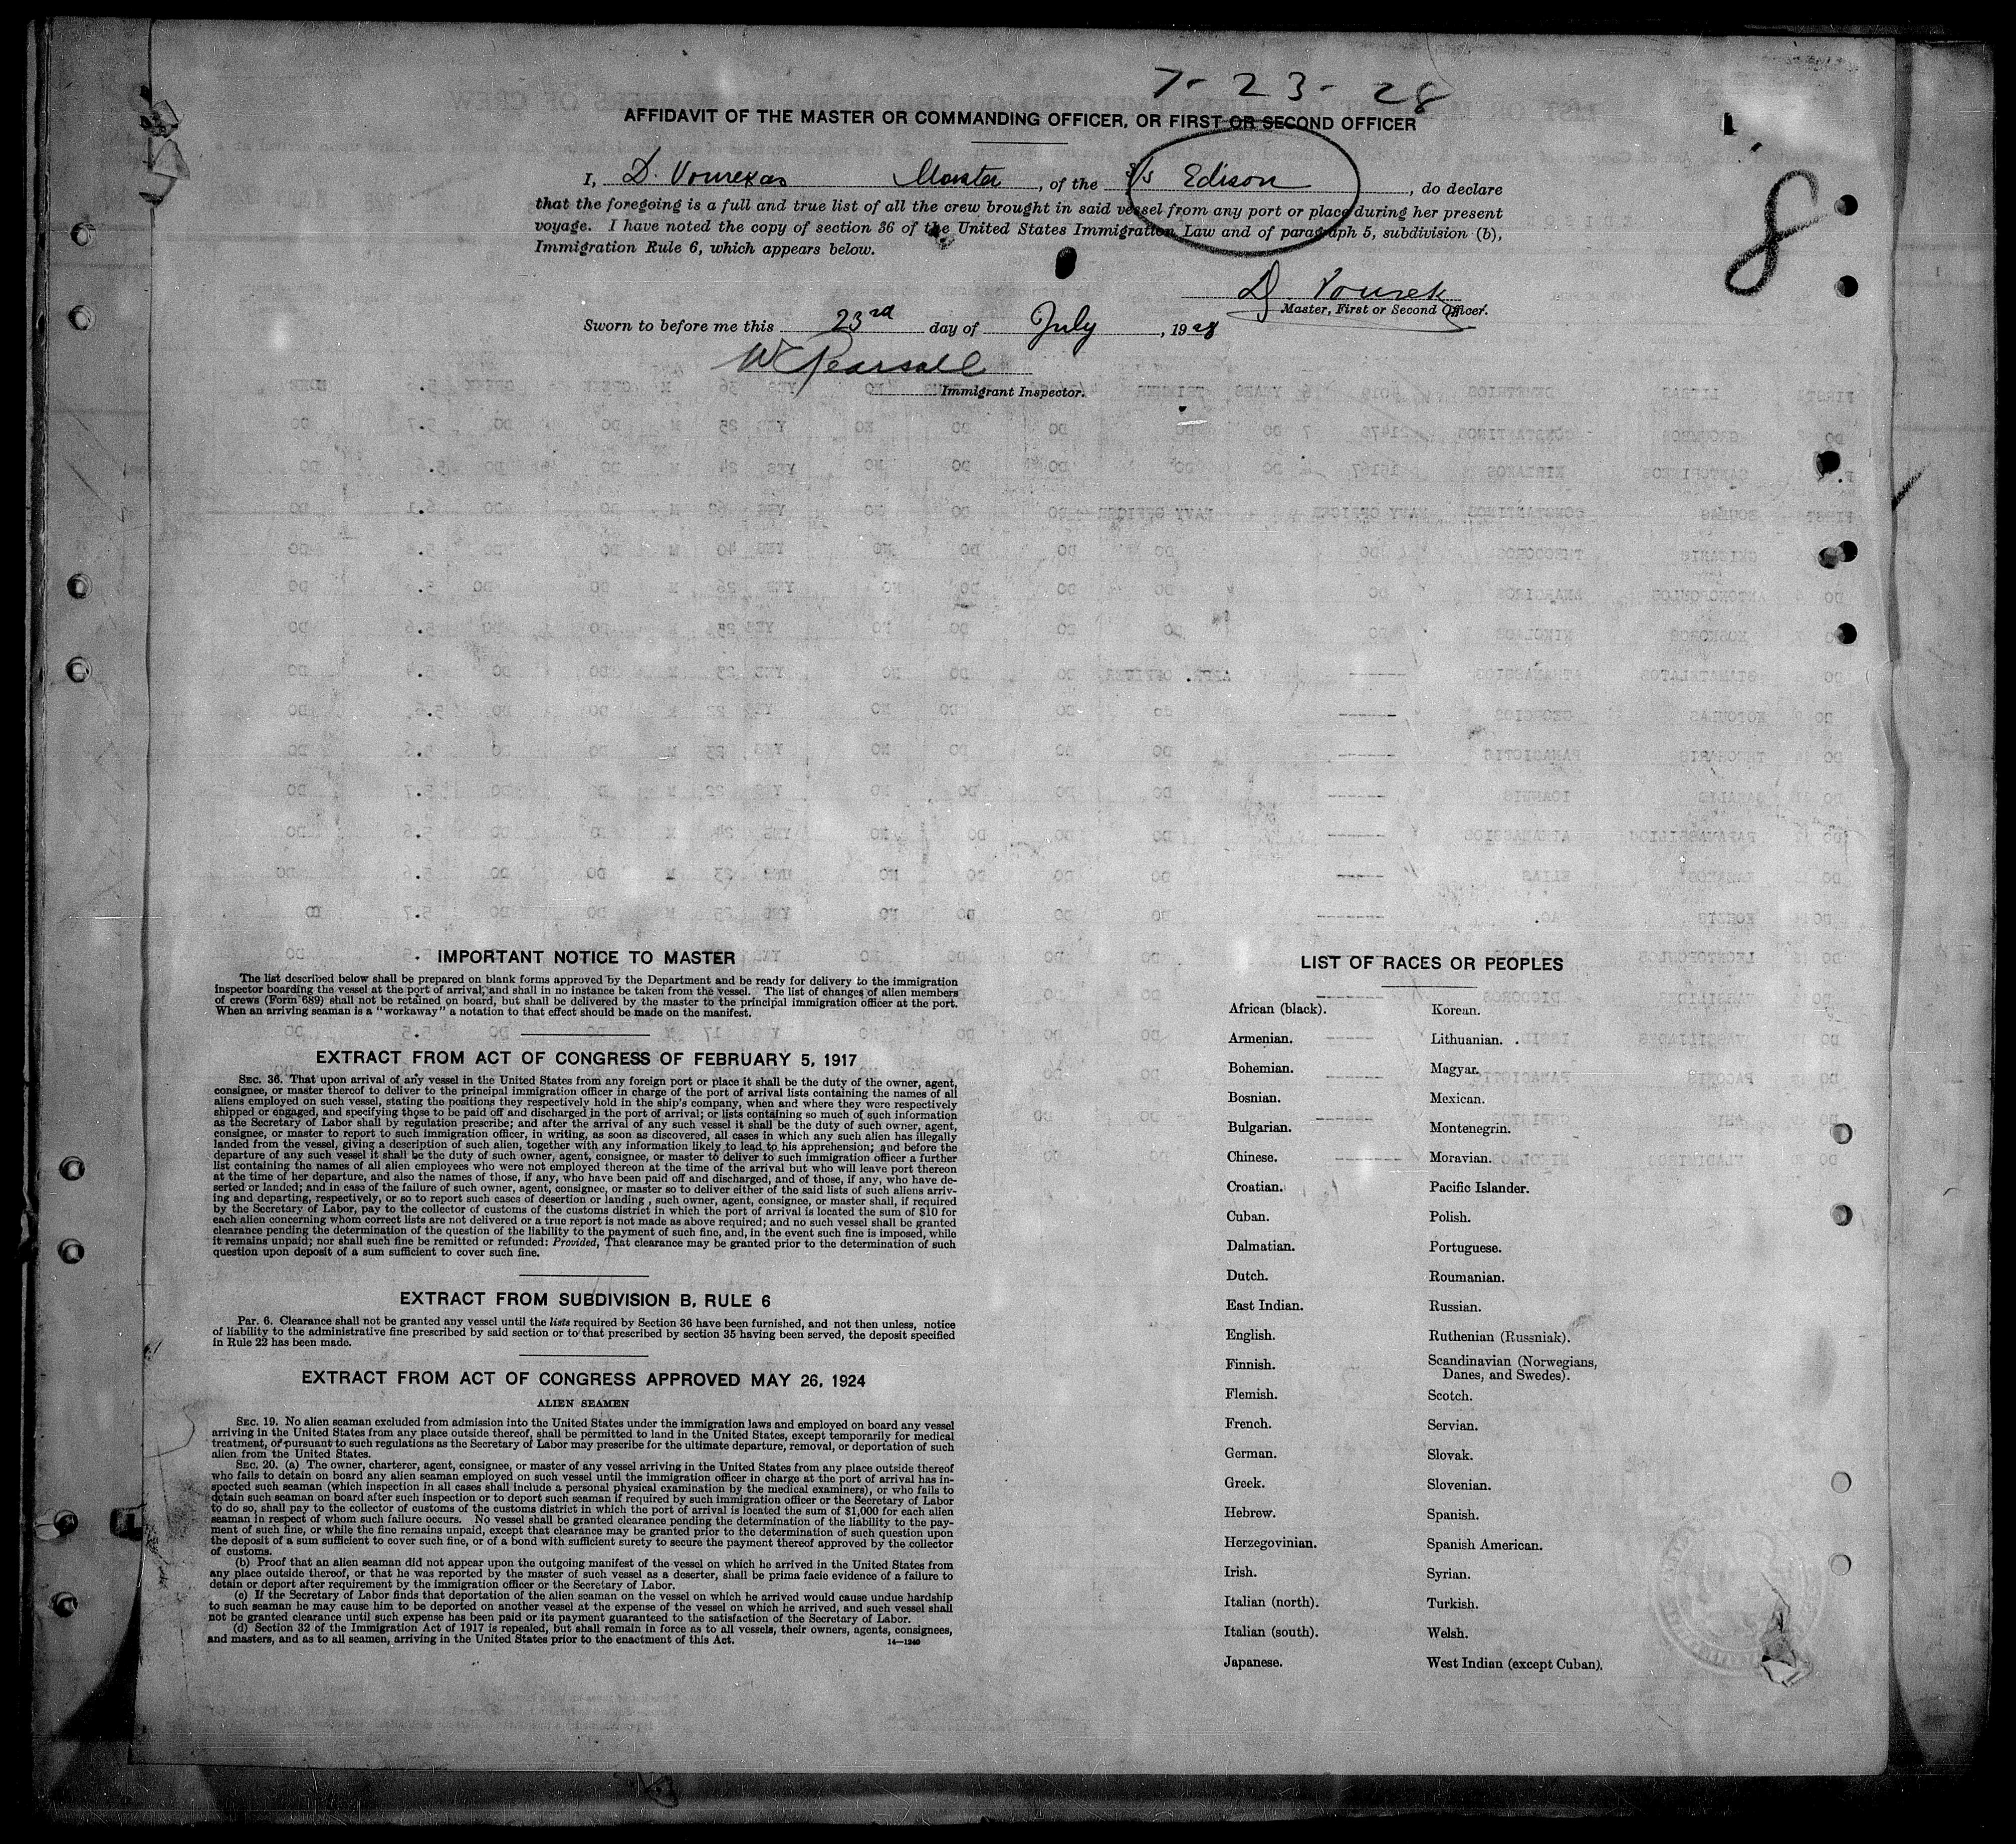 7-23-28
AFFIDAVIT OF THE MASTER OR COMMANDING OFFICER, OR FIRST OR SECOND OFFICER
I, D. Vourexas Master, of the S/S Edison, do declare
that the foregoing is a full and true list of all the crew brought in said vessel from any port or place during her present
voyage. I have noted the copy of section 36 of the United States Immigration Law and of paragraph 5, subdivision (b),
Immigration Rule 6, which appears below.
8
D Vourek
Master, First or Second Officer.
Sworn to before me this 23rd day of July, 1928
W Pearsall
Immigrant Inspector.
IMPORTANT NOTICE TO MASTER
The list described below shall be prepared on blank forms approved by the Department and be ready for delivery to the immigration
inspector boarding the vessel at the port of arrival, and shall in no instance be taken from the vessel. The list of changes of alien members
of crews (Form 689) shall not be retained on board, but shall be delivered by the master to the principal immigration officer at the port.
When an arriving seaman is a "workaway" a notation to that effect should be made on the manifest.
EXTRACT FROM ACT OF CONGRESS OF FEBRUARY 5, 1917
SEC. 36. That upon arrival of any vessel in the United States from any foreign port or place it shall be the duty of the owner, agent,
consignee, or master thereof to deliver to the principal immigration officer in charge of the port of arrival lists containing the names of all
aliens employed on such vessel, stating the positions they respectively hold in the ship's company, when and where they were respectively
shipped or engaged, and specifying those to be paid off and discharged in the port of arrival; or lists containing so much of such information
as the Secretary of Labor shall by regulation prescribe; and after the arrival of any such vessel it shall be the duty of such owner, agent,
consignee, or master to report to such immigration officer, in writing, as soon as discovered, all cases in which any such alien has illegally
landed from the vessel, giving a description of such alien, together with any information likely to lead to his apprehension; and before the
departure of any such vessel it shall be the duty of such owner, agent, consignee, or master to deliver to such immigration officer a further
list containing the names of all alien employees who were not employed thereon at the time of the arrival but who will leave port thereon
at the time of her departure, and also the names of those, if any, who have been paid off and discharged, and of those, if any, who have de-
serted or landed; and in case of the failure of such owner, agent, consignee, or master so to deliver either of the said lists of such aliens arriv-
ing and departing, respectively, or so to report such cases of desertion or landing, such owner, agent, consignee, or master shall, if required
by the Secretary of Labor, pay to the collector of customs of the customs district in which the port of arrival is located the sum of $10 for
each alien concerning whom correct lists are not delivered or a true report is not made as above required; and no such vessel shall be granted
clearance pending the determination of the question of the liability to the payment of such fine, and, in the event such fine is imposed, while
it remains unpaid; nor shall such fine be remitted or refunded: Provided, That clearance may be granted prior to the determination of such
question upon deposit of a sum sufficient to cover such fine.
EXTRACT FROM SUBDIVISION B, RULE 6
Par. 6. Clearance shall not be granted any vessel until the lists required by Section 36 have been furnished, and not then unless, notice
of liability to the administrative fine prescribed by said section or to that prescribed by section 35 having been served, the deposit specified
in Rule 22 has been made.
EXTRACT FROM ACT OF CONGRESS APPROVED MAY 26, 1924
ALIEN SEAMEN
SEC. 19. No alien seaman excluded from admission into the United States under the immigration laws and employed on board any vessel
arriving in the United States from any place outside thereof, shall be permitted to land in the United States, except temporarily for medical
treatment, or pursuant to such regulations as the Secretary of Labor may prescribe for the ultimate departure, removal, or deportation of such
alien from the United States.
SEC. 20. (a) The owner, charterer, agent, consignee, or master of any vessel arriving in the United States from any place outside thereof
who fails to detain on board any alien seaman employed on such vessel until the immigration officer in charge at the port of arrival has in-
spected such seaman (which inspection in all cases shall include a personal physical examination by the medical examiners), or who fails to
detain such seaman on board after such inspection or to deport such seaman if required by such immigration officer or the Secretary of Labor
to do so, shall pay to the collector of customs of the customs district in which the port of arrival is located the sum of $1,000 for each alien
seaman in respect of whom such failure occurs. No vessel shall be granted clearance pending the determination of the liability to the pay-
ment of such fine, or while the fine remains unpaid, except that clearance may be granted prior to the determination of such question upon
the deposit of a sum sufficient to cover such fine, or of a bond with sufficient surety to secure the payment thereof approved by the collector
of customs.
(b) Proof that an alien seaman did not appear upon the outgoing manifest of the vessel on which he arrived in the United States from
any place outside thereof, or that he was reported by the master of such vessel as a deserter, shall be prima facie evidence of a failure to
detain or deport after requirement by the immigration officer or the Secretary of Labor.
(c) If the Secretary of Labor finds that deportation of the alien seaman on the vessel on which he arrived would cause undue hardship
to such seaman he may cause him to be deported on another vessel at the expense of the vessel on which he arrived, and such vessel shall
not be granted clearance until such expense has been paid or its payment guaranteed to the satisfaction of the Secretary of Labor.
(d) Section 32 of the Immigration Act of 1917 is repealed, but shall remain in force as to all vessels, their owners, agents, consignees,
and masters, and as to all seamen, arriving in the United States prior to the enactment of this Act.
14—1240
LIST OF RACES OR PEOPLES
African (black).
Armenian.
Bohemian.
Bosnian.
Bulgarian.
Chinese.
Croatian.
Cuban.
Dalmatian.
Dutch.
East Indian.
English.
Finnish.
Flemish.
French.
German.
Greek.
Hebrew.
Herzegovinian.
Irish.
Italian (north).
Italian (south).
Japanese.
Korean.
Lithuanian.
Magyar.
Mexican.
Montenegrin.
Moravian.
Pacific Islander.
Polish.
Portuguese.
Roumanian.
Russian.
Ruthenian (Russniak).
Scandinavian (Norwegians,
Danes, and Swedes).
Scotch.
Servian.
Slovak.
Slovenian.
Spanish.
Spanish American.
Syrian.
Turkish.
Welsh.
West Indian (except Cuban).